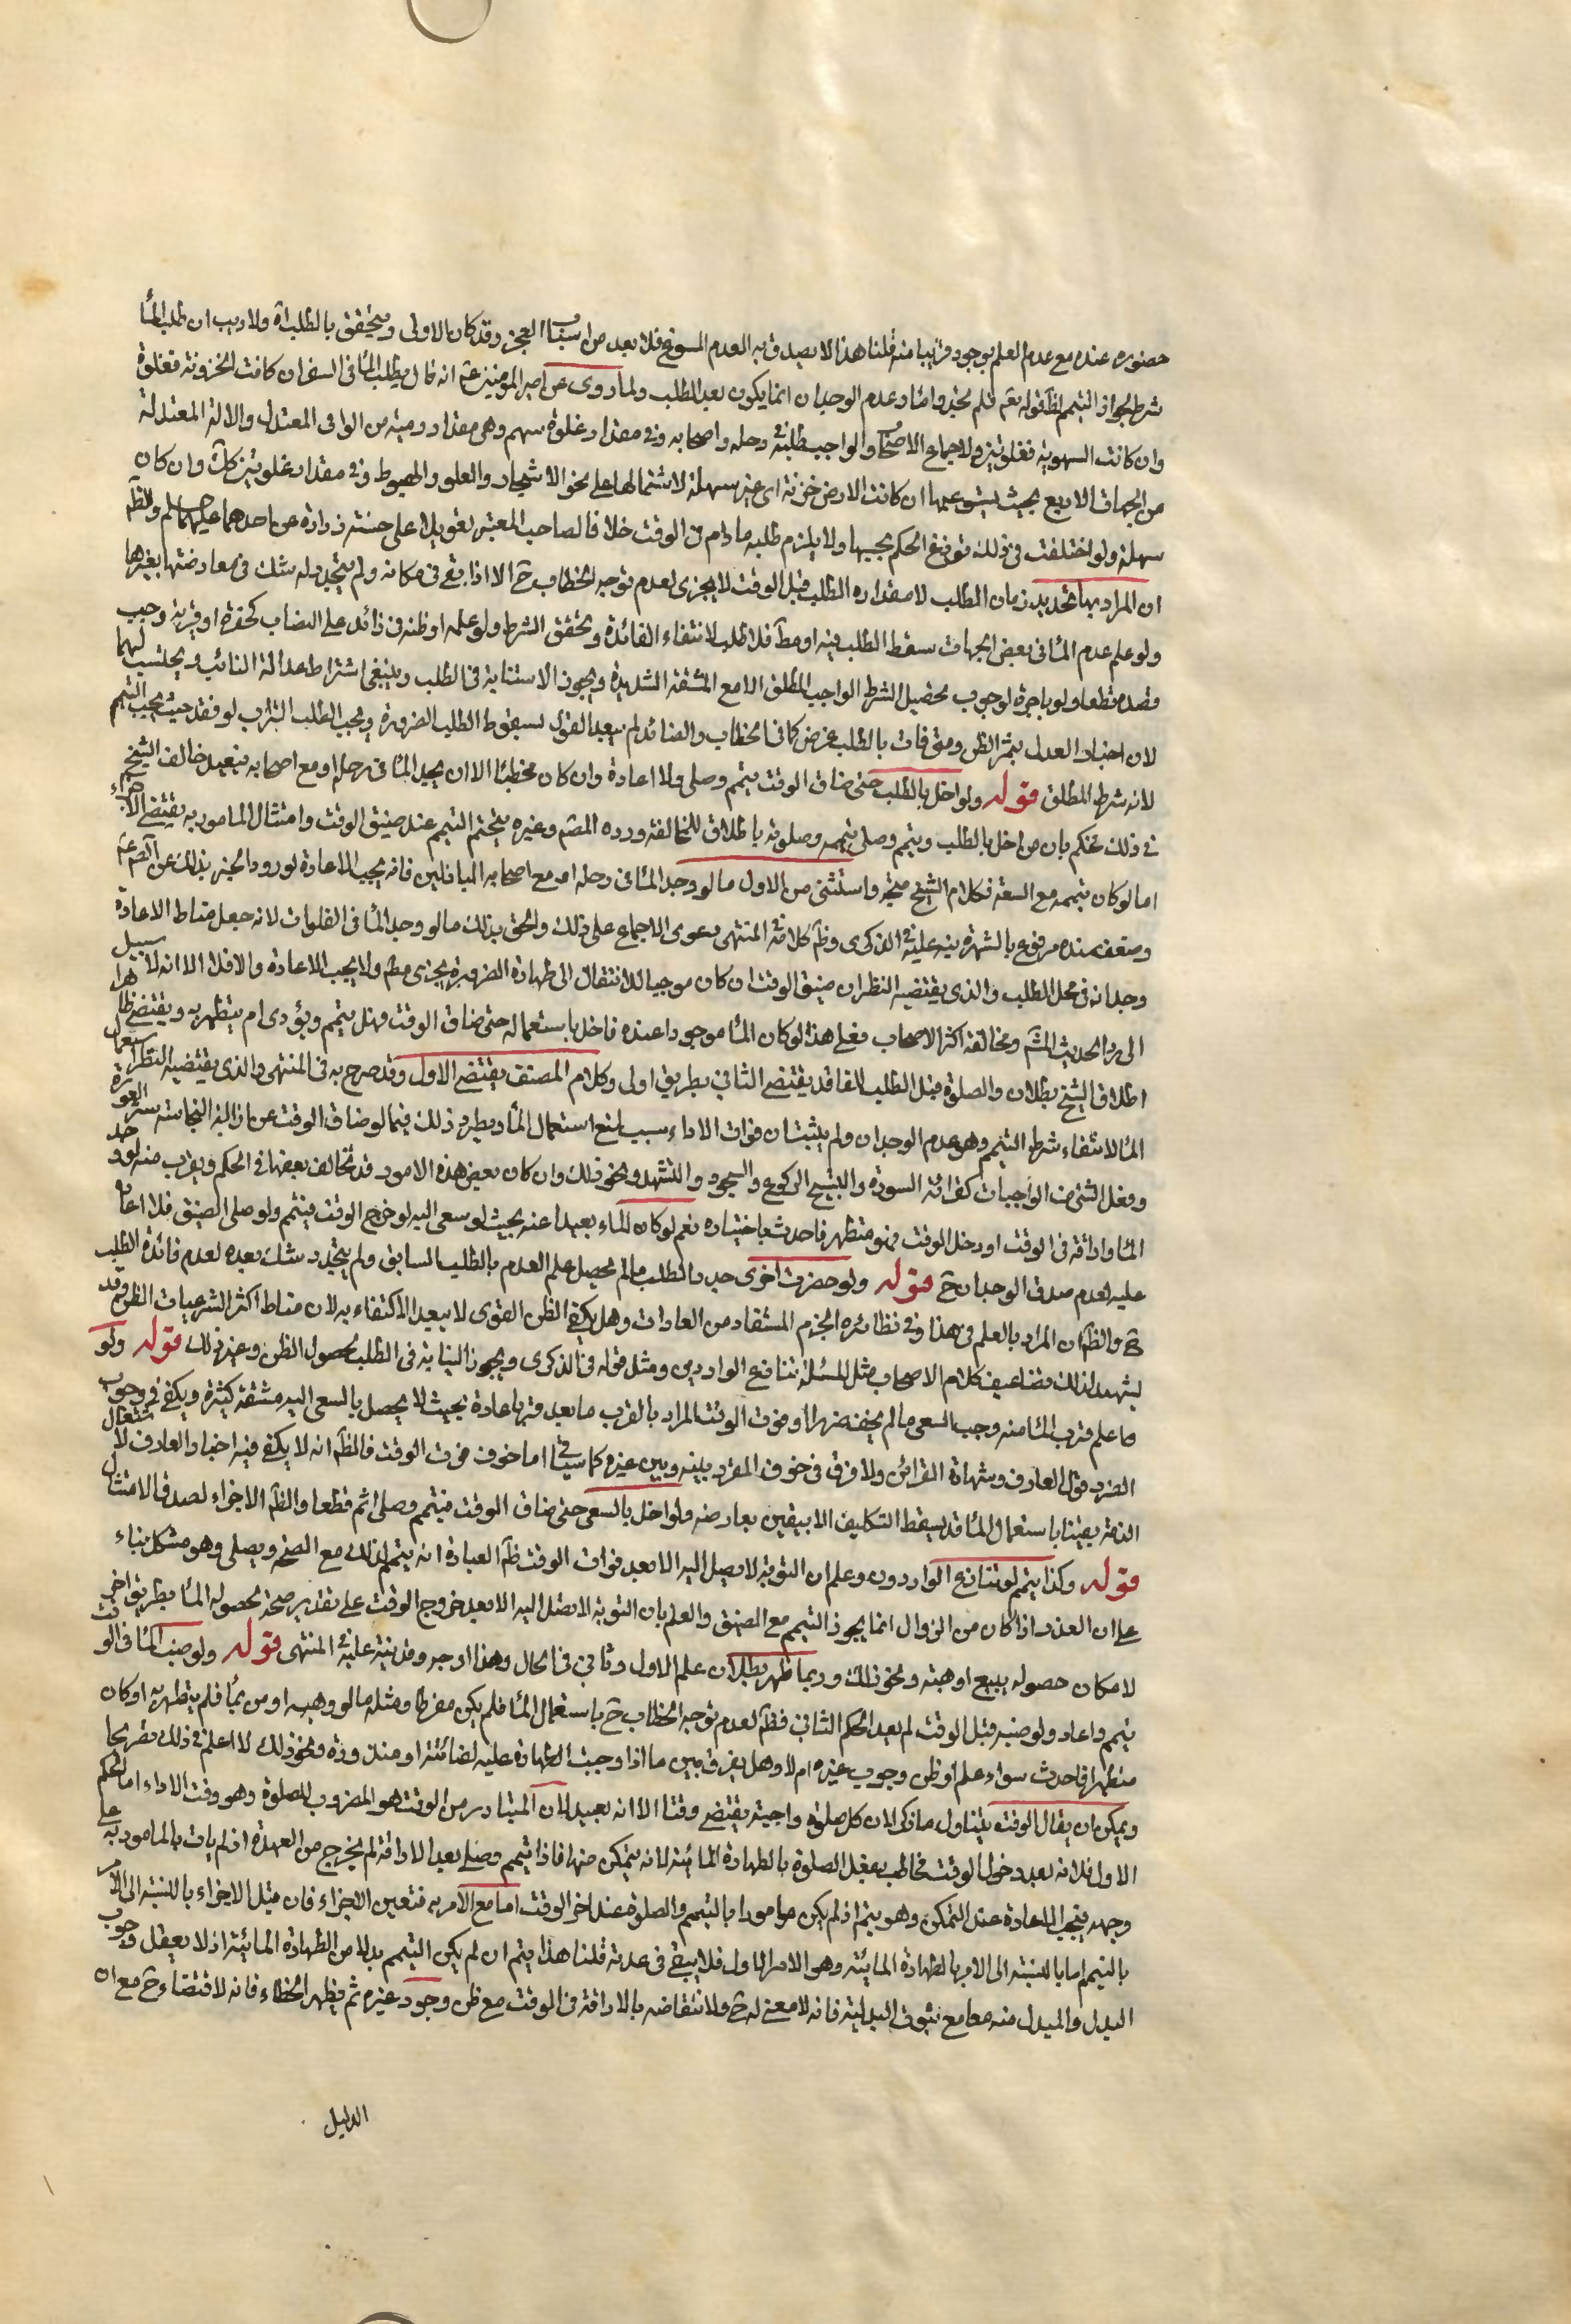 حضوره عنده مع عدم العلم بوجوده قريبا منه قلنا هذا لا يصدق به العدم المسوغ فلا يعد من اسباب العجز وقد كان الاولى ويتحقق بالطلب اه ولا ريب ان طلب الماء
شرط لجواز التيمم لظ قوله تعم فلم تجدوا ماء وعدم الوجدان انما يكون بعد الطلب ولما روى عن امير المؤمنين ع انه قال يطلب الماء فى السفر ان كانت الحزونة فغلوة
وان كانت السهوية فغلوتين ولاجماع الاصحاب والواجب طلبه فى رحله واصحابه وفى مقدار غلوة سهم وهى مقدار رميته من الرامى المعتدل والالة المعتدلة
من الجهات الاربع بحيث يستوعبها ان كانت الارض حزنة اى غير سهلة لاشتمالها على نحو الاشجار والعلو والهبوط وفى مقدار غلوتين ان كانت وان كان
سهلة ولو اختلفت فى ذلك توزع الحكم بحسبها ولا يلزم طلبه ما دام فى الوقت خلافا لصاحب المعتبر تعويلا على حسنة زرارة عن احدهما عليهما السلم والظ
ان المراد بها تحديد زمان الطلب لا مقداره الطلب قبل الوقت لا يجزى لعدم توجه الخطاب ح الا اذا بقى فى مكانه ولم يتجدد له شك فى معارضتها بغيرها
ولو علم عدم الماء فى بعض الجهات سقط الطلب فيه او مط فلا طلب لانتفاء الفائدة وتحقق الشرط ولو علمه او ظنه فى زائد على النصاب كخضرة او قرية وجب
قصده قطعا ولو باجرة لوجوب تحصيل الشرط الواجب المطلق الا مع المشقة الشديدة ويجوز الاستنابة فى الطلب وينبغى اشتراط عدالة النائب ويحتسب لهما
لان اخبار العدل يثمر الظن ومتى فات بالطلب غرض كما فى الحطاب والصائد لم يبعد القول بسقوط الطلب للضرورة ويجب الطلب التراب لو فقد حيث يجب التيمم
لانه شرط المطلق قوله ولو اخل بالطلب حتى ضاق الوقت يتمم وصلى ولا اعادة وان كان مخطئا الا ان يجد الماء فى رحله او مع اصحابه فيعيد خالف الشيخ
فى ذلك فحكم بان من اخل بالطلب وتيمم وصلى تيممه وصلوته باطلاق للمخالفة ورده المصم وغيره بتحتم التيمم عند ضيق الوقت وامتثال المامور به يقتضى الاجزاء
اما لو كان تيممه مع السعة فكلام الشيخ متجه واستثنى من الاول ما لو وجد الماء فى رحله او مع اصحابه الباذلين فانه يجب الاعادة لورود الخبر بذلك عن الصم ع
وضعف سنده مرفوع بالشهرة نبه عليه فى الذكرى وظ كلامه فى المنتهى دعوى الاجماع على ذلك والحق بذلك ما لو وجد الماء فى الفلوات لانه جعل مناط الاعادة
وجدانه فى محل الطلب والذى يقتضيه النظر ان ضيق الوقت ان كان موجبا للانتقال الى طهارة الضرورة يجزى مط ولا يجب الاعادة والا فلا الا انه لا سبيل
الى رد الحديث المش ومخالفة اكثر الاصحاب فعلى هذا لو كان الماء موجودا عنده فاخل باستعماله حتى ضاق الوقت فهل يتيمم ويؤدى ام يتطهر به ويقتضى ظاهر
اطلاق الشيخ بطلان والصلوة قبل الطلب لفاقد يقتضى الثانى بطريق اولى وكلام المصنف يقتضى الاول وقد صرح به فى المنتهى والذى يقتضيه النظر استعمال
الماء لانتفاء شرط التيمم وهو عدم الوجدان ولم يثبت ان فوات الاداء سبب لمنع استعمال الماء ويطرد ذلك فيما لو ضاق الوقت عن ازالة النجاسة ستر العورة
وفعل الشئ من الواجبات كقرائة السورة والتسبيح الركوع والسجود والتشهد ونحو ذلك وان كان بعض هذه الامور قد تخالف بعضها فى الحكم ويقرب منه لو وجد
الماء واراقه فى الوقت او دخل الوقت وهو متطهر فاحدث باختياره نعم لو كان الماء بعيدا عنه بحيث لو سعى اليه لو خرج الوقت فيتمم ولو صلى الضيق فلا اعادة
عليه لعدم صدق الوجدان ح قوله ولو حضرت اخرى جدد الطلب ما لم يحصل علم العدم بالطلب السابق ولم يتجدد شك بعده لعدم فائدة الطلب
ح والظ ان المراد بالعلم فى هذا وفى نظائره الجزم المستفاد من العادات وهل يكفى الظن القوى لا يبعد الاكتفاء به لان مناط اكثر الشرعيات الظن وقد
يشهد لذلك تضاعيف كلام الاصحاب مثل المسئلة تنازع الواردين ومثل قوله فى الذكرى ويجوز النيابة فى الطلب لحصول الظن وغير ذلك قوله ولو
ما علم قرب الماء منه وجب السعى ما لم يخف ضررا او فوت الوقت المراد بالقرب ما يعد قربا عادة بحيث لا يحصل بالسعى اليه مشقة كثيرة ويكفى فى وجوب
الضرر قول العارف وشهادة القرائن ولا فرق فى خوف الضرر بينه وبين غيره كما سياتى اما خوف فوت الوقت فالظ انه لا يكفى فيه اخبار العارف لاشتغال
الذمة يقينا باستعمال الماء فلا يسقط التكليف الا بيقين يعارضه ولو اخل بالسعى حتى ضاق الوقت فيتمم وصلى اثم قطعا والظ الاجزاء لصدق الامتثال
قوله وكذا يتمم لو تنازع الواردون وعلم ان النوبة لا يصل اليه الا بعد فوات الوقت ظ العبارة انه يتيمم لذلك مع الصحة ويصلى وهو مشكل بناء
على ان العذر اذا كان من الزوال انما يجوز التيمم مع الضيق والعلم بان النوبة لا تصل اليه الا بعد خروج الوقت على تقدير صحته لحصوله الماء بطريق اخر
لامكان حصوله ببيع او هبة ونحو ذلك وربما ظهر بطلان علم الاول وتانى فى الحال وهذا اوجه وقد نبه عليه فى المنتهى قوله ولو صب الماء فى الوقت
يتيمم واعاد ولو صبه قبل الوقت لم يعد الحكم الثانى فظ لعدم توجه الخطاب ح باستعمال الماء فلم يكن مفرطا ومثله ما لو وهبه او من بماء فلم يتطهر به او كان
متطهرا فاحدث سواء علم او ظن وجوب غيره ام لا وهل يفرق بين ما اذا وجبت الطهارة عليه لضائتة او منذورة ونحو ذلك لا اعلم فى ذلك تصريحا
ويمكن ان يقال الوقت يتناول ما ذكر لان كل صلوة واجبة يقتضى وقتا الا انه بعيد لان المتبادر من الوقت هو المضروب للصلوة وهو وقت الاداء اما الحكم
الاول فلانه بعد دخول الوقت مخاطب بفعل الصلوة بالطهارة المائية لانه يتمكن منها فاذا تيمم وصلى بعد الاراقة لم يخرج من العهدة اذ لم يات بالمامور به على
وجهه فتجب الاعادة عند التمكن وهو يتم اذ لم يكن مامورا بالتيمم والصلوة عند اخر الوقت اما مع الامر به فتعين الاجزاء فان قيل الاجزاء بالنسبة الى الامر
بالتيمم اما بالنسبة الى الامر بالطهارة المائية وهو الامر الاول فلا يبقى فى عدته قلنا هذا يتم ان لم يكن التيمم بدلا من الطهارة المائية اذ لا يعقل وجوب
البدل والمبدل منه معا مع ثبوت البدلية فانه لا معنى له ح ولا انتقاضه بالاراقة فى الوقت مع ظن وجود غيره ثم يظهر الخطاء فانه لا قتضاء ح مع ان
الدليل